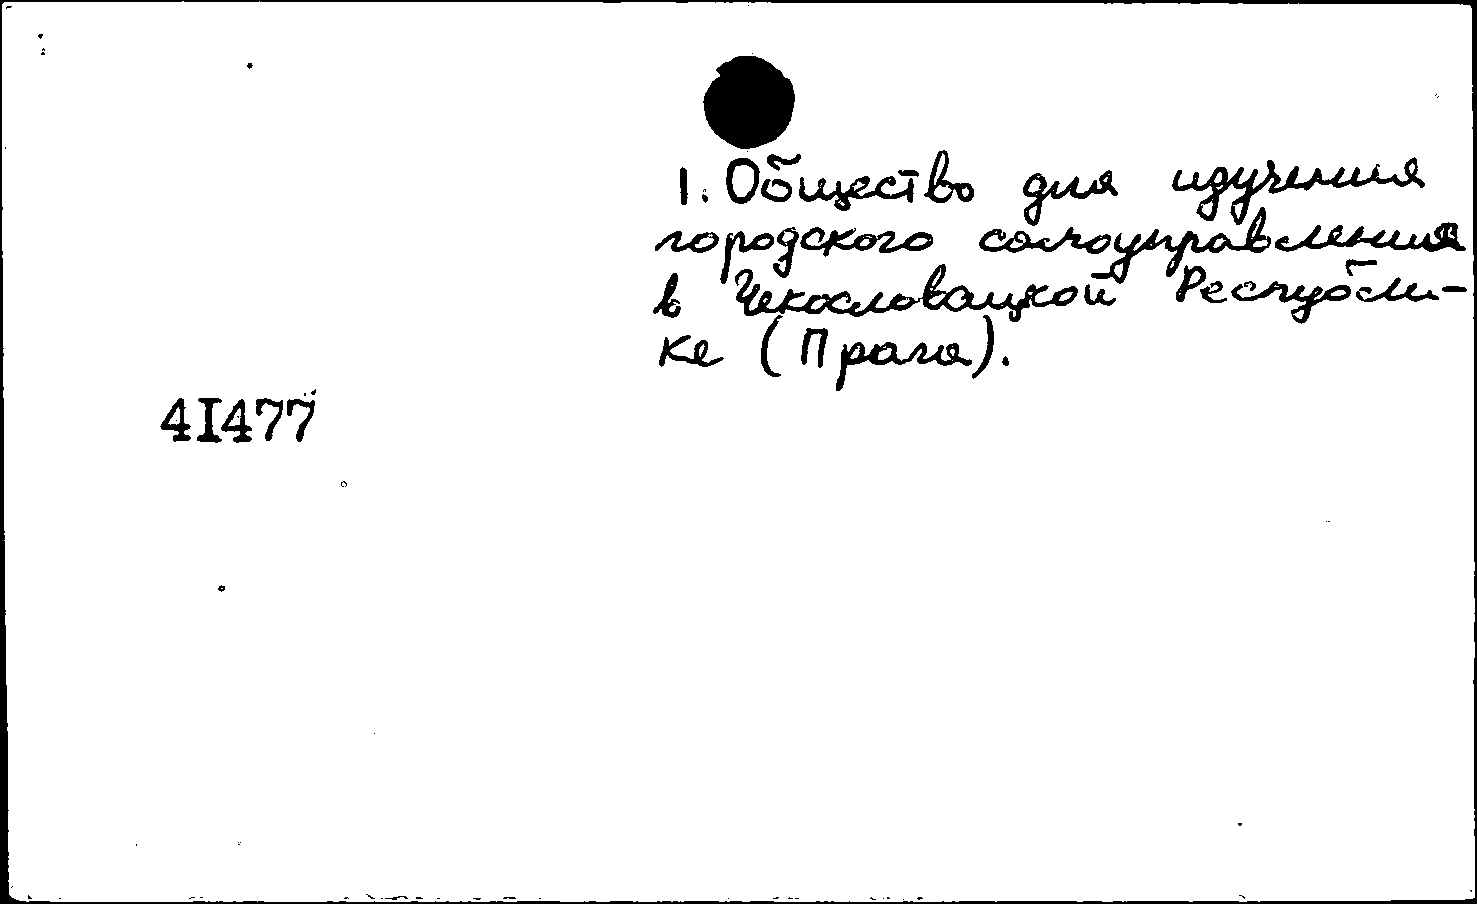 1. Общество для изучения
городского самоуправления
в Чехословацкой Республи-
ке (Прага).
41477